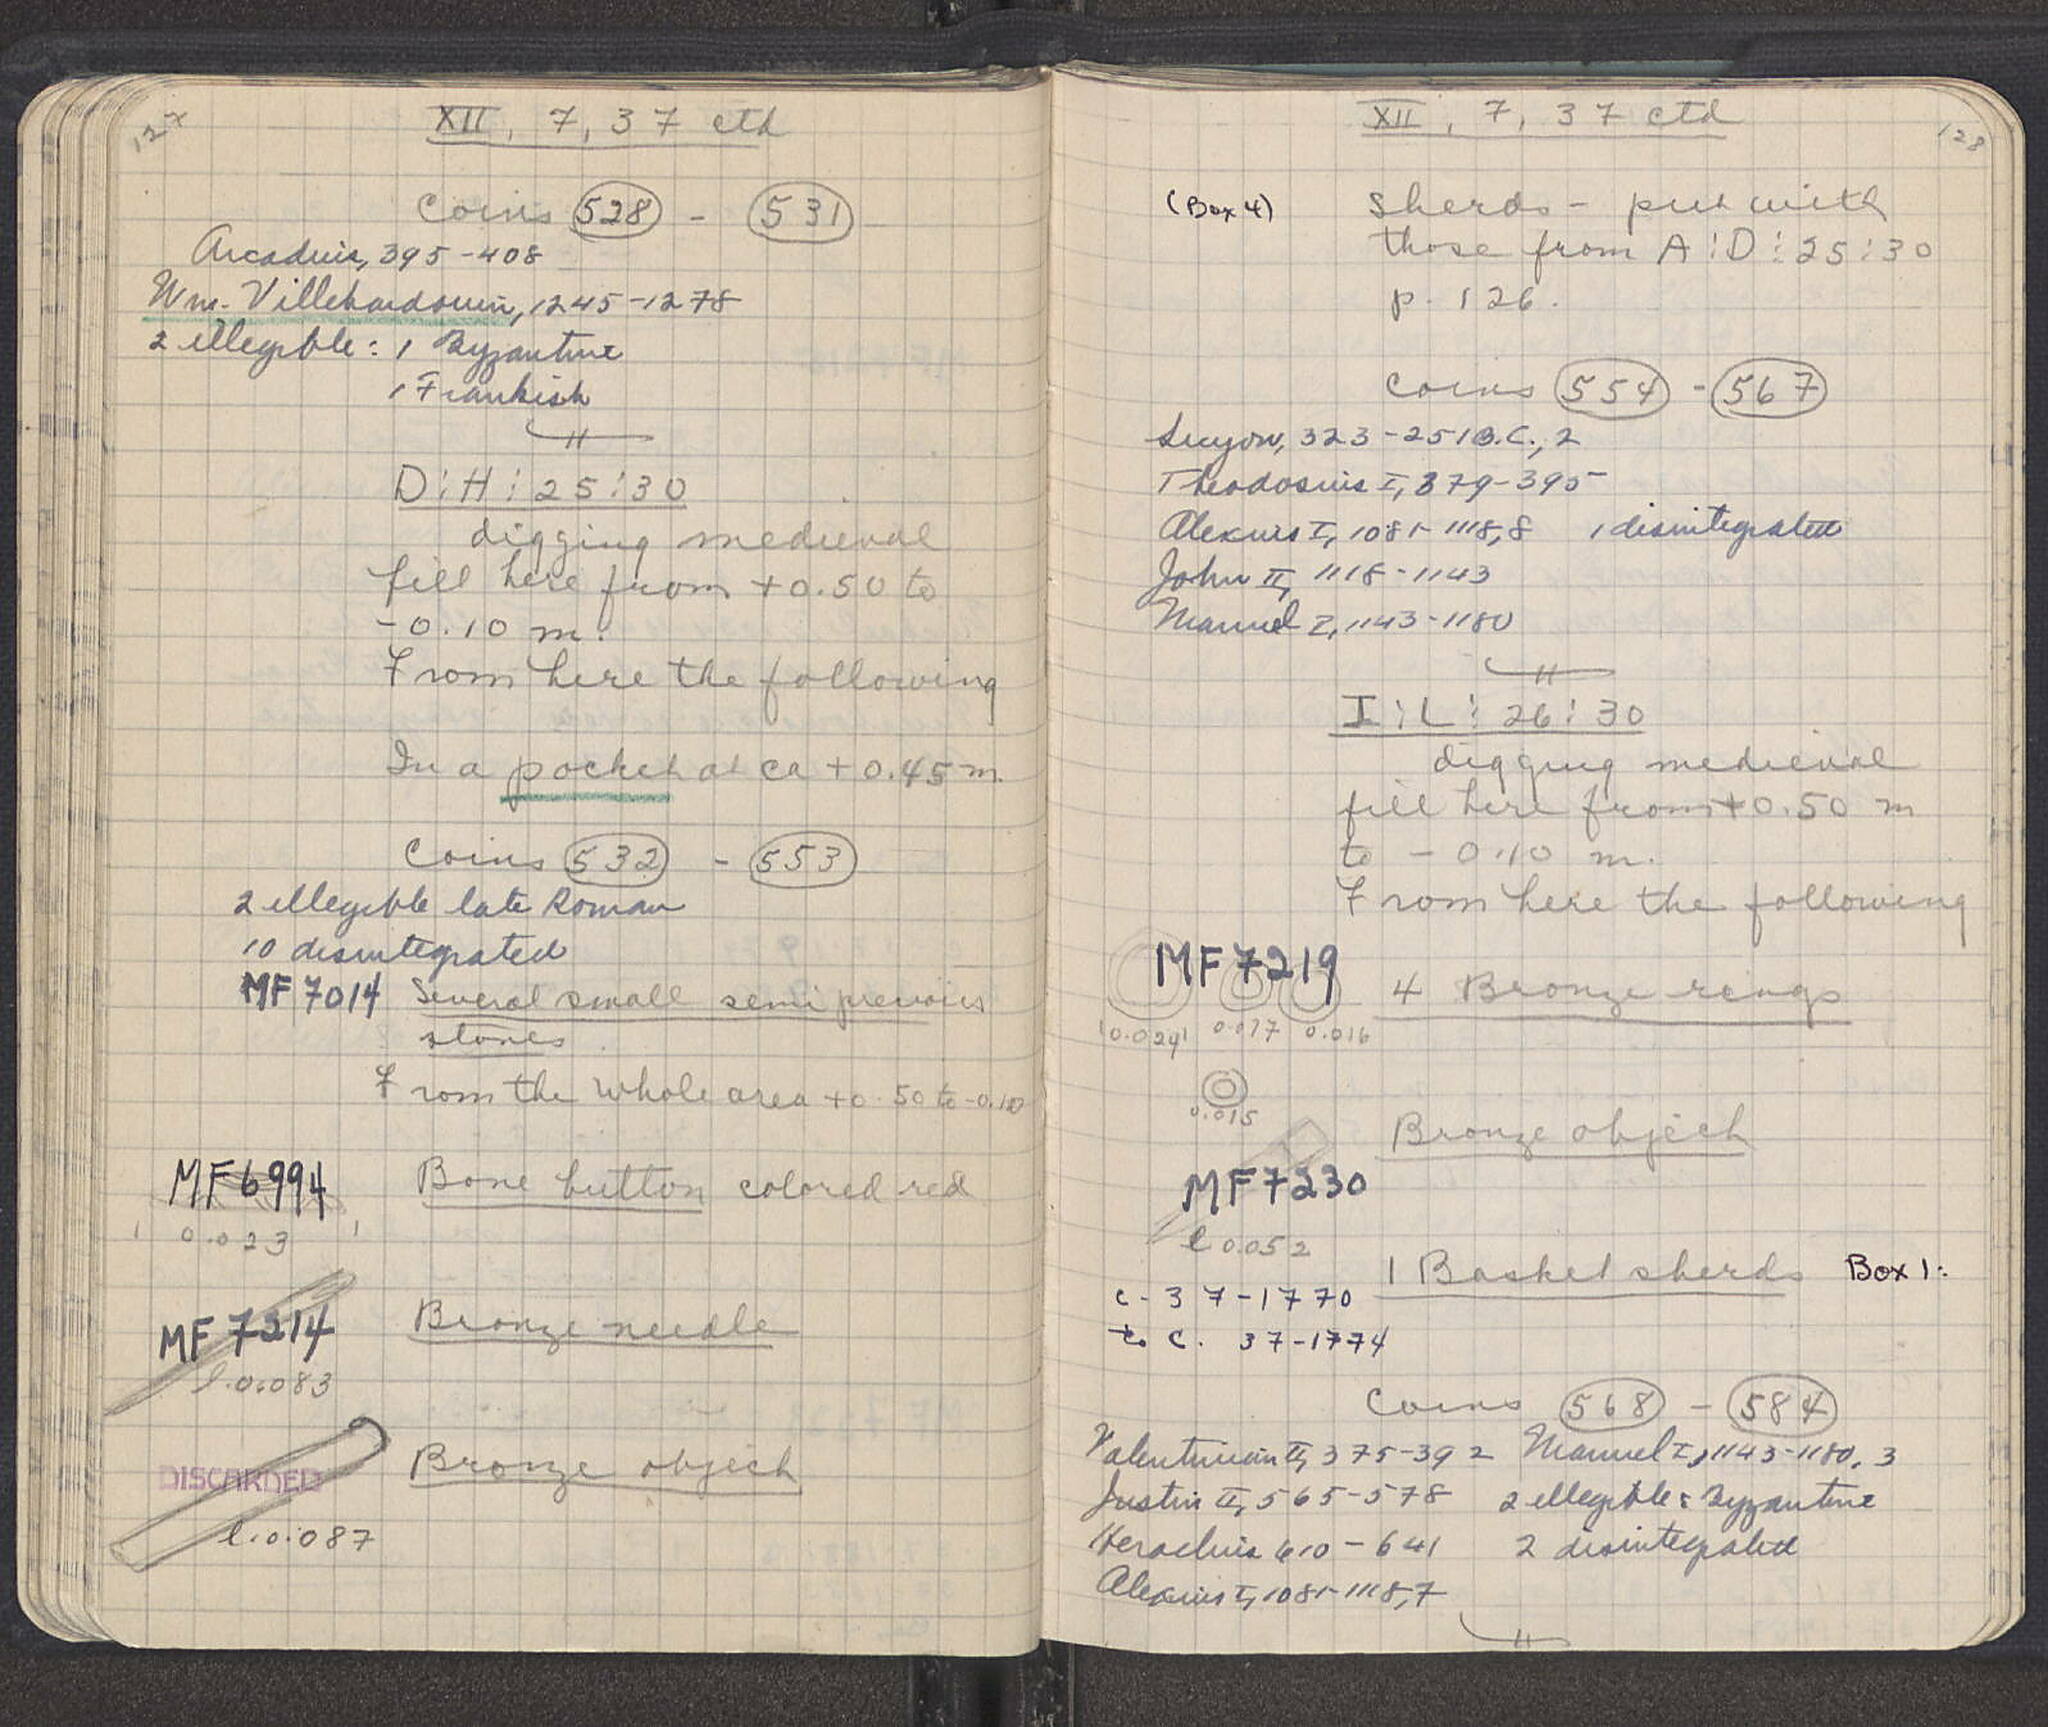 127
XII, 7, 37 ctd
Coins 528 - 531
Arcadius, 395-408
Wm. Villehardouin, 1245-1278
2 illegible: 1 Byzantine
1 Frankish
D:H:25:30
digging medieval
fill here from +0.50 to
-0.10 m.
From here the following
In a pocket at ca +0.45 m.
Coins 532 - 553
2 illegible late Roman
10 disintegrated
MF 7014 Several small semi precious
stones
From the whole area +0.50 to -0.10
MF 6994 Bone button colored red
0.023
MF 7214 Bronze needle
l. 0.083
Bronze object
DISCARDED
l. 0.087
128
XII, 7, 37 ctd
(Box 4) Sherds - put with
those from A:D:25:30
p. 126.
Coins 554 - 567
Sicyon, 323-251 B.C., 2
Theodosius I, 379-395
Alexius I, 1081-1118, 8 1 disintegrated
John II, 1118-1143
Manuel I, 1143-1180
I:L:26:30
digging medieval
fill here from +0.50 m
to -0.10 m.
From here the following
MF 7219 4 Bronze rings
0.024 0.017 0.016
0.015
Bronze object
MF 7230
l 0.052
1 Basket sherds Box 1:
C. 37-1770
to C. 37-1774
Coins 568 - 584
Valentinian II, 375-392 Manuel I, 1143-1180, 3
Justin II, 565-578 2 illegible: Byzantine
Heraclius 610-641 2 disintegrated
Alexius I, 1081-1118, 7